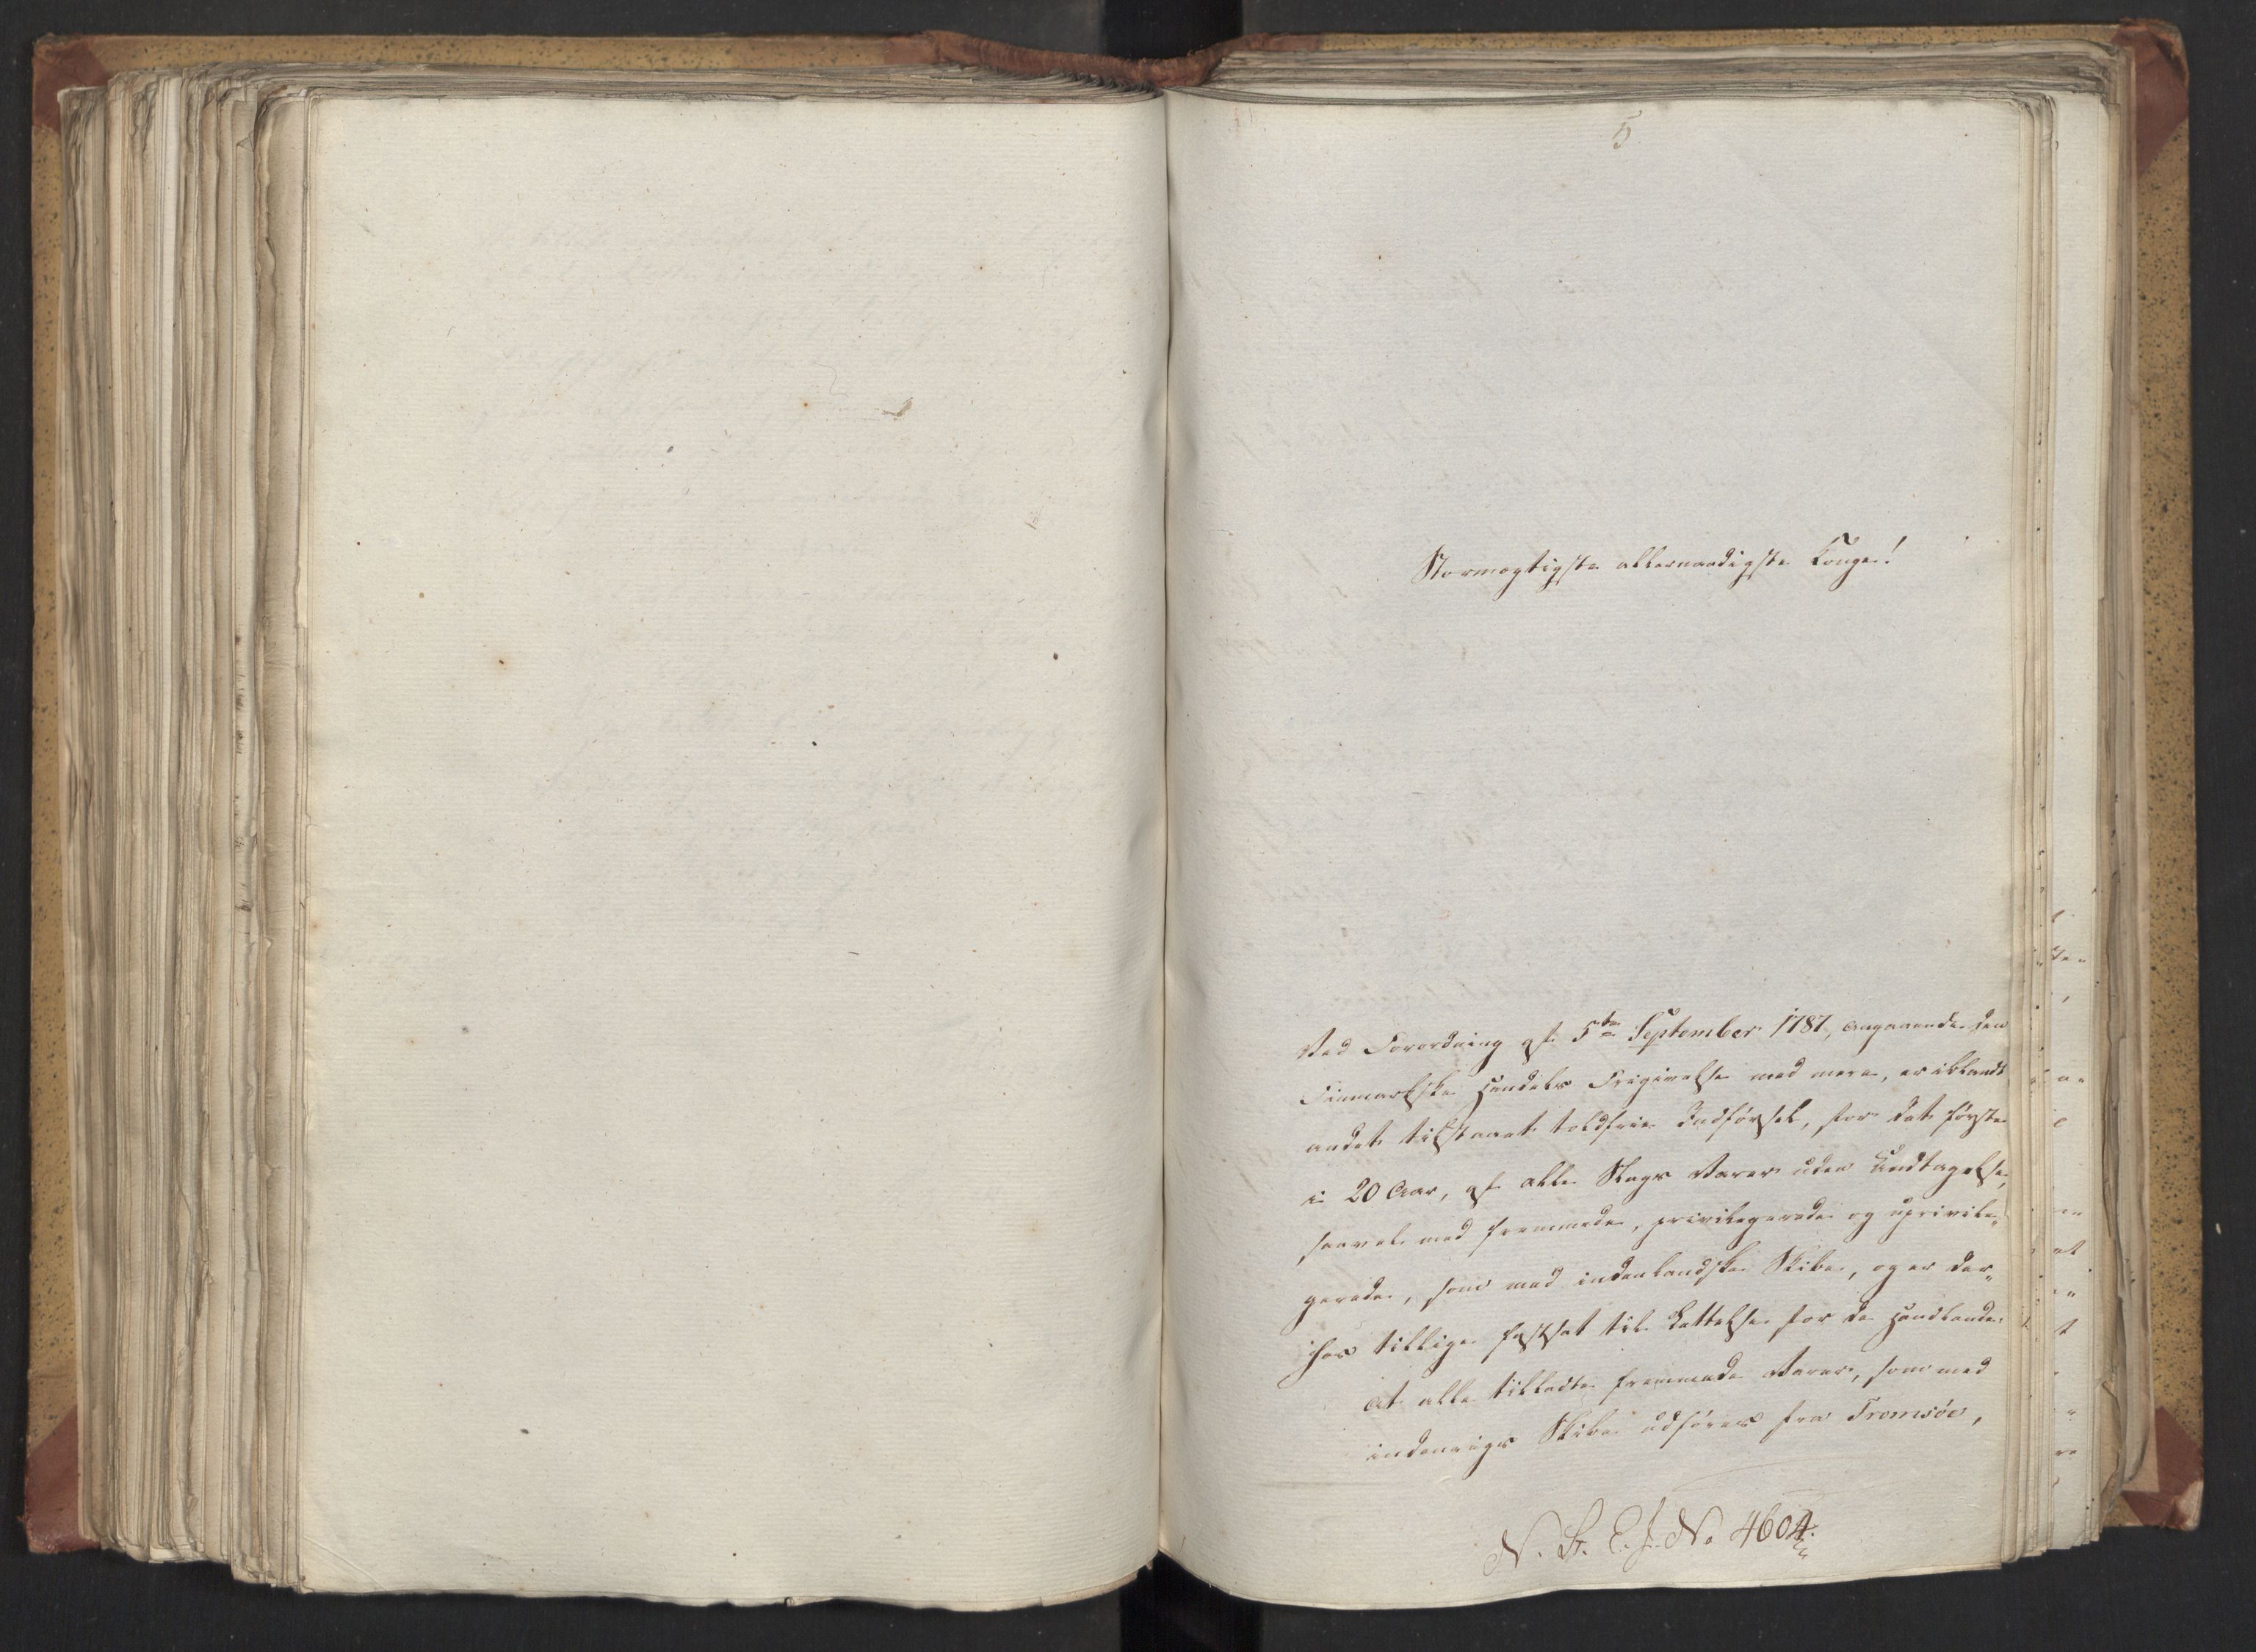 5
Stormægtigste allernaadigste Konge!
Ved Forordning af 5te September 1787, angaaende den
Finmarkske Handels Frigivelse med mere, er iblandt
andet tilstaaet toldfrie Indførsel, for det første
i 20 Aar, af alle Slags Varer uden Undtagelse,
saavel med fremmede, privilegerede og uprivile„
gerede, som med indenlandske Skibe, og er der„
hos tillige fastsat til Lettelse for de Handlende
at alle tilladte fremmede Varer, som med
indenrigs Skibe udføres fra Tromsøe,
N. S. E. J. No 4604.